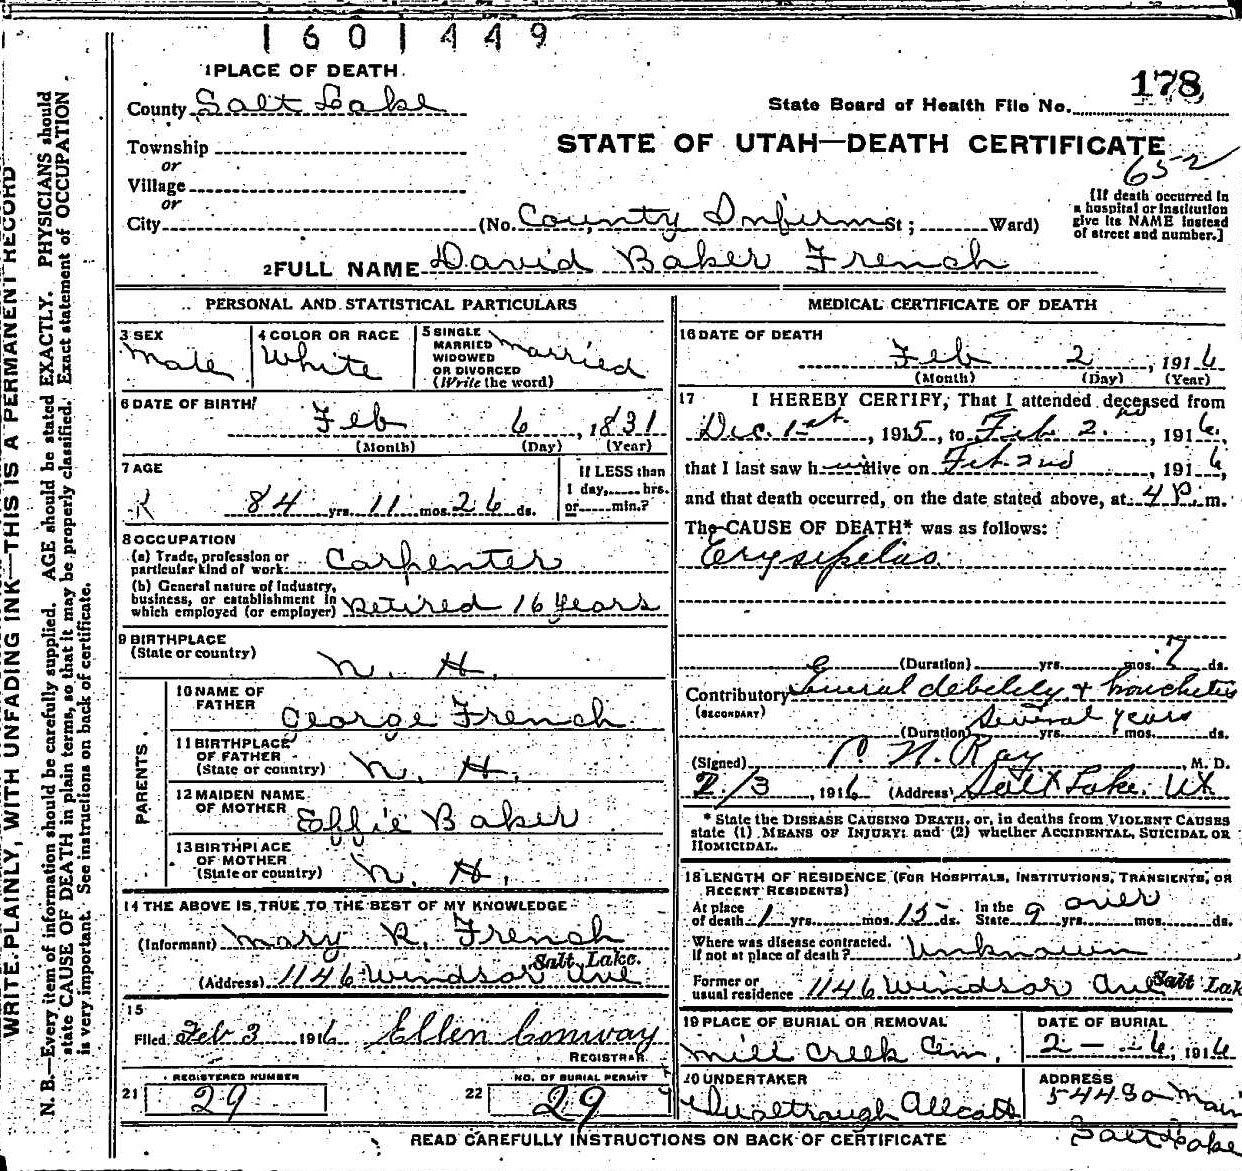 1601449
1 PLACE OF DEATH
178
County Salt Lake
State Board of Health File No.
Township
STATE OF UTAH—DEATH CERTIFICATE
or
652
Village
or
City (No. County Infirm St; Ward)
[If death occurred in a hospital or institution give its NAME instead of street and number.]
2 FULL NAME David Baker French
PERSONAL AND STATISTICAL PARTICULARS
3 SEX Male
4 COLOR OR RACE White
5 SINGLE MARRIED WIDOWED OR DIVORCED (Write the word) Married
6 DATE OF BIRTH
Feb 6, 1831
(Month) (Day) (Year)
7 AGE
84 yrs. 11 mos. 26 ds.
If LESS than
1 day, hrs.
or min.?
8 OCCUPATION
(a) Trade, profession or
particular kind of work Carpenter
(b) General nature of Industry,
business, or establishment in
which employed (or employer) Retired 16 Years
9 BIRTHPLACE
(State or country)
N. H.
PARENTS
10 NAME OF
FATHER George French
11 BIRTHPLACE
OF FATHER
(State or country) N. H.
12 MAIDEN NAME
OF MOTHER Effie Baker
13 BIRTHPLACE
OF MOTHER
(State or country) N. H.
14 THE ABOVE IS TRUE TO THE BEST OF MY KNOWLEDGE
(Informant) Mary R. French
(Address) 1146 Windsor Ave Salt Lake.
15
Filed Feb 3 1916 Ellen Conway
REGISTRAR
21 REGISTERED NUMBER 29
22 NO. OF BURIAL PERMIT 29
MEDICAL CERTIFICATE OF DEATH
16 DATE OF DEATH
Feb 2, 1916
(Month) (Day) (Year)
17 I HEREBY CERTIFY, That I attended deceased from
Dec. 1st, 1915, to Feb 2nd, 1916,
that I last saw him alive on Feb 2nd, 1916,
and that death occurred, on the date stated above, at 4 P. m.
The CAUSE OF DEATH* was as follows:
Erysipelas
(Duration) yrs. mos. 7 ds.
Contributory General debelity + bronchetis
(SECONDARY)
(Duration) Several years yrs. mos. ds.
(Signed) N. Ray, M. D.
2/3, 1916 (Address) Salt Lake. Ut
* State the DISEASE CAUSING DEATH, or, in deaths from VIOLENT CAUSES
state (1) MEANS OF INJURY; and (2) whether ACCIDENTAL, SUICIDAL OR
HOMICIDAL.
18 LENGTH OF RESIDENCE (FOR HOSPITALS, INSTITUTIONS, TRANSIENTS, OR
RECENT RESIDENTS)
At place of death 1 yrs. mos. 15 ds. In the State 9 yrs. over mos. ds.
Where was disease contracted.
if not at place of death? Unknown
Former or
usual residence 1146 Windsor Ave Salt Lak
19 PLACE OF BURIAL OR REMOVAL
Mill Creek Cem.
DATE OF BURIAL
2 - 6, 1916
20 UNDERTAKER
ADDRESS
544 So Main
Salt Lake
READ CAREFULLY INSTRUCTIONS ON BACK OF CERTIFICATE
WRITE PLAINLY, WITH UNFADING INK—THIS IS A PERMANENT RECORD
N. B.—Every item of information should be carefully supplied. AGE should be stated EXACTLY. PHYSICIANS should
state CAUSE OF DEATH in plain terms, so that it may be properly classified. Exact statement of OCCUPATION
is very important. See instructions on back of certificate.